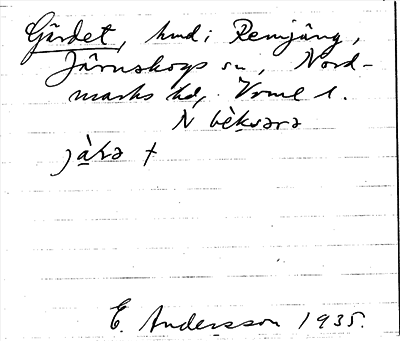 Gärdet, hmd i Remjäng,
Järnskogs sn, Nord-
marks hd, Vrml l.
N bèksərə
jàṟə +
E. Andersson 1935.